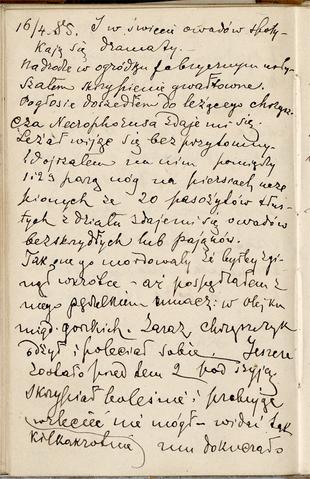 16/4. 85. I w świecie owadów spoty-
kają się dramaty.
Na drodze w ogródku fabrycznym usły-
szałem skrzypienie gwałtowne.
Po głosie doszedłem do leżącego chrząsz-
cza Necrophorusa zdaje mi się.
Leżał wijąc się bezprzytomny.
Dojrzałem na nim pomiędzy
1 i 23 parą nóg na piersiach ucze
pionych ze 20 pasożytów tłus-
tych z działu zdaje mi się owadów
bezskrzydłych lub pająków.
Tak go mordowały że byłby zgi-
nął wkrótce - aż pospędzałem z
niego pędzelkiem macz: w olejku
migd. gorzkich. Zaraz chrząszczyk
odżył i poleciał sobie. Jeszcze
zostało przedtem 2 pod szyją
skrzypiał boleśnie i próbując
wzlecieć nie mógł - widać tak
kilkakrotnie mu dokuczało